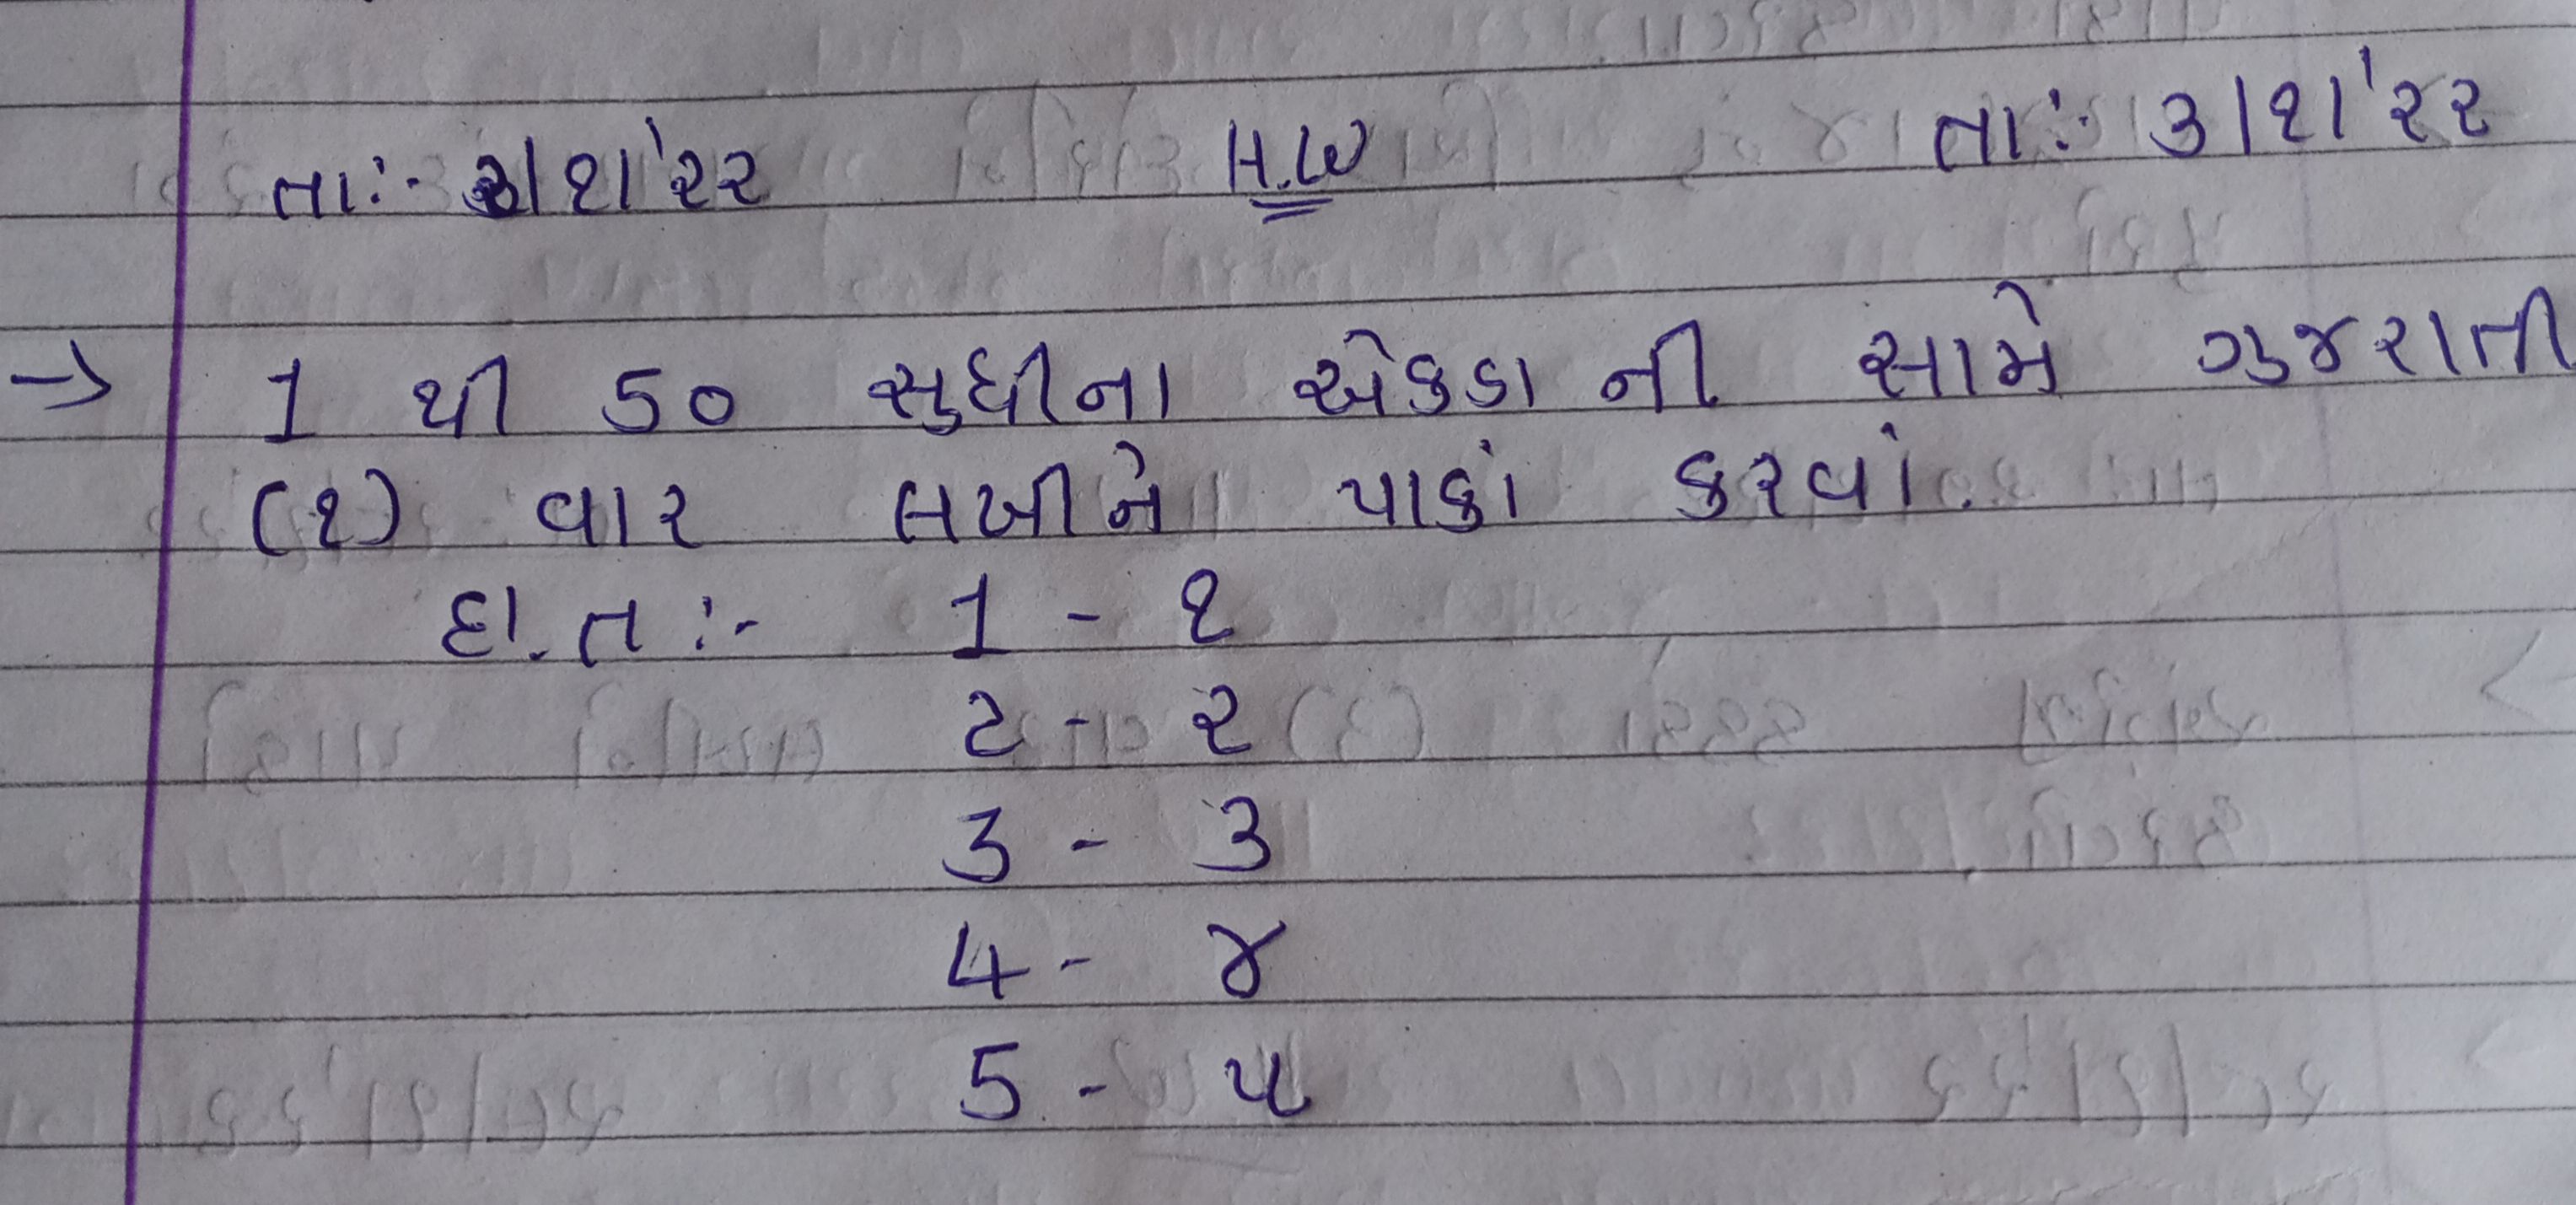 તા:- ૨/૧/'૨૨ H.W તા:- ૩/૧/'૨૨
→ 1 થી 50 સુધીના એકડા ની સામે ગુજરાતી
(૧) વાર લખીને પાકાં કરવાં.
દા.ત :- 1 - ૧
2 - ૨
3 - ૩
4 - ૪
5 - ૫